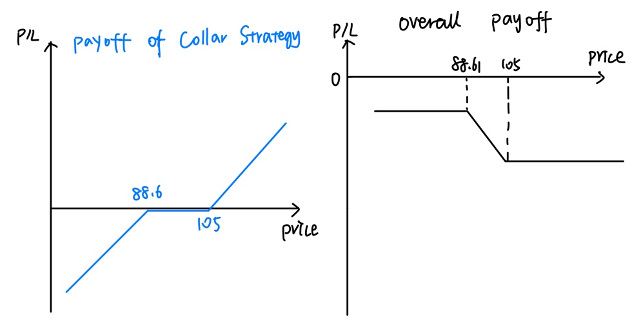 P/L
payoff of Collar Strategy
88.6
105
price
overall payoff
P/L
88.61
105
price
0